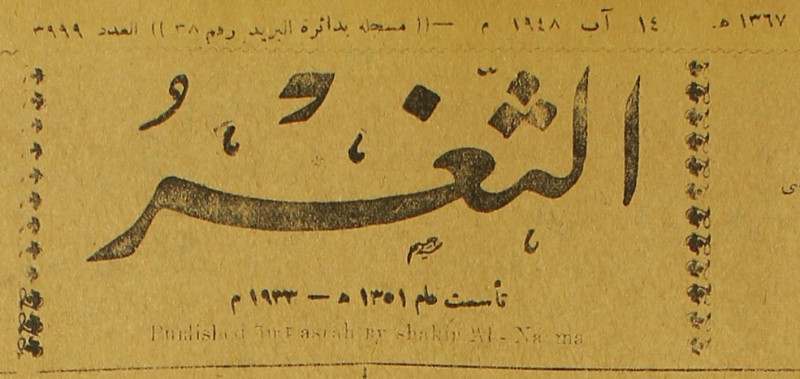 ١٣٦٧ هـ ١٤ آب ١٩٤٨ م —(( مسجله بدائرة البريد رقم ٣٨ )) العدد ٣٩٩٩
الثَّغْرُ
تأسست عام ١٣٥١ هـ — ١٩٣٣ م
Published In Basrah By Shakir Al - Na ma